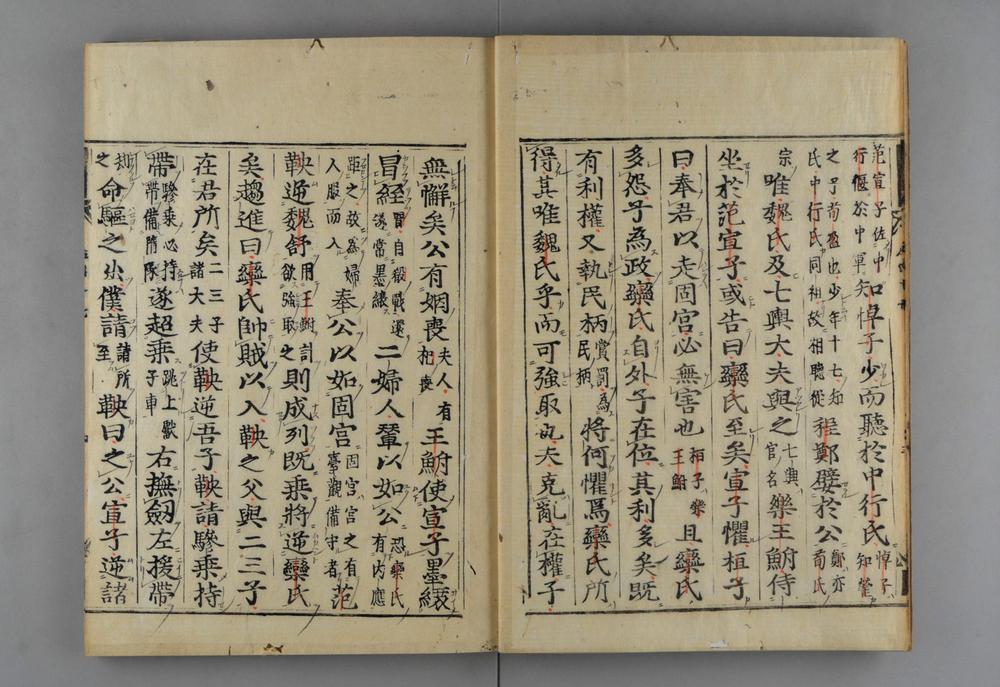 范宣子佐中行偃於中軍知悼子少而聽於中行氏悼子知罃
之子荀盈也少年十七知氏中行氏同祖故相聽從程鄭嬖於公鄭亦荀氏
宗唯魏氏及七輿大夫與之七輿官名樂王鮒侍
坐於范宣子或告曰欒氏至矣宣子懼桓子
曰奉君以走固宮必無害也桓子樂王鮒且欒氏
多怨子為政欒氏自外子在位其利多矣既
有利權又執民柄賞罰為民柄將何懼焉欒氏所
得其唯魏氏乎而可強取也夫克亂在權子
無懈矣公有姻喪夫人有杞喪王鮒使宣子墨縗
冒絰晉自殽戰還遂常墨縗二婦人輦以如公恐欒氏有內應
距之故為婦人服而入奉公以如固宮固宮宮之有臺觀備守者范
鞅逆魏舒用王鮒計欲強取之則成列既乘將逆欒氏
矣趨進曰欒氏帥賊以入鞅之父與二三子
在君所矣二三子諸大夫使鞅逆吾子鞅請驂乘持
帶驂乘必持帶備隋隊遂超乘跳上獻子車右撫劒左援帶
劫之命驅之出僕請請所至鞅曰之公宣子逆諸